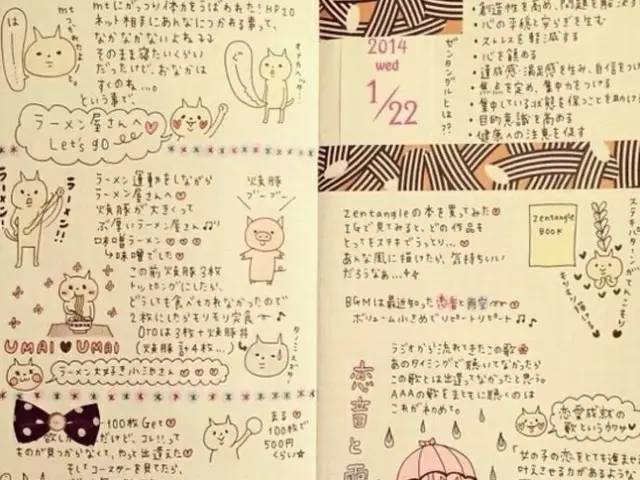 mtつかれたよ
は…
mtにがっつり体力をうばわれた！HP20
ネット相手にあんなにつかれる事って、
なかなかないよねチチ
そのまま寝たいくらい
だったけど、おなかは
すくのね…。
という事で、
オナカヘッター…
ラーメン屋さんへ
Let's go
ラーメン!!
ラーメン運動をしながら
ラーメン屋さんへ
焼豚が大きくって
ぶ厚いラーメン屋さん♫
味噌ラーメン
↳味噌でした
この前焼豚3枚
トッピングにしたら、
どうしても食べきれなかったので
2枚にしたらモリモリ完食
OTOは3枚+焼豚丼
(焼豚計4枚…)
焼豚
ブーブー
UMAI♥UMAI
ラーメン大好き小池さん
100枚Get
欲し　　だけど、コレ!!って
ものが見つからなくて、やっと出逢えた
そしてコースターを見てたら、
まる
100枚で
500円
くらい☆
2014
wed
1/22
ゼンタングルとは??
創造性を高め、問題を解決す
・心の平穏と安らぎを生む
・ストレスを軽減する
・心を鎮める
・達成感・満足感を生み、自信をつけ
・焦点を定め、集中力をつける
・集中している状態を保つことを助ける
・目的意識を高める
・健康への注意を促す
Zentangleの本を買ってみた
IGで見てみると、どの作品も
とってもステキでうっとり…
あんな風に描けたら、気持ちいい
だろうなぁ…
Zentangle
BOOK
BGMは最近知った恋音と雨空
ボリューム小さめでリピートリピート♫♪
恋音と雨
ラジオから流れてきたこの歌
あのタイミングで聴いてなかったら
この歌とは出逢ってなかったと思う。
AAAの歌をまともに聴くのは
これが初めて。
恋愛成就の
歌というウワサ
「女の子の恋をとても進ませる
叶えさせる力があるような